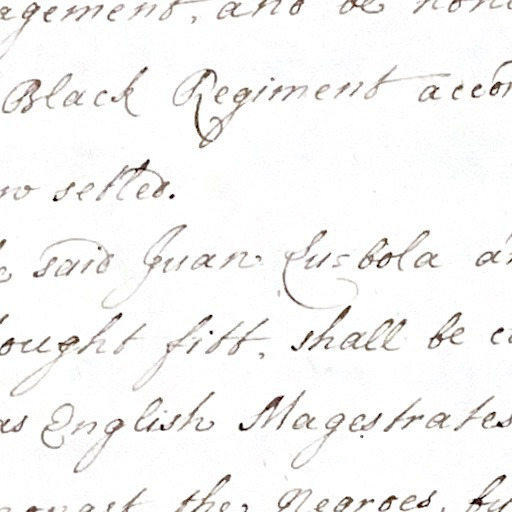 agement, and be hono
Black Regiment accor
w setled.
e said Juan Lu=bola an
hought fitt, shall be co
as English Magestrates
mongst the Negroes, by